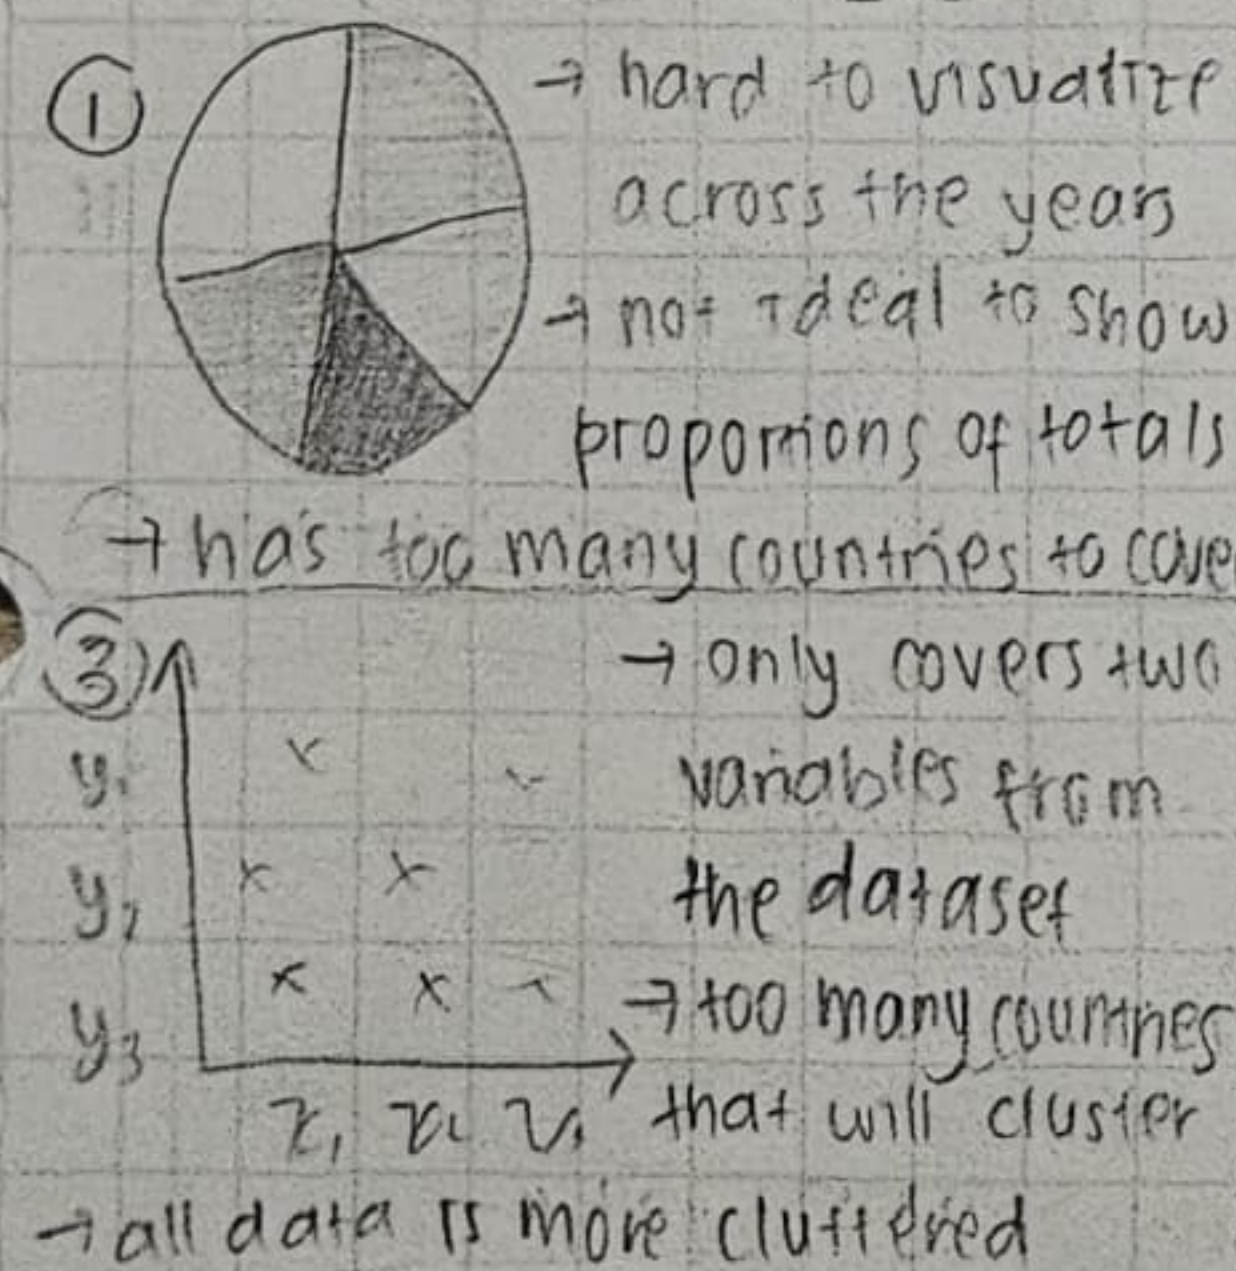 ① → hard to visualize
across the years
→ not ideal to show
proportions of totals
→ has too many countries to cove
③ → only covers two
y₁ variables from
y₂ the dataset
y₃ → too many countries
x₁ x₂ that will cluster
→ all data is more cluttered